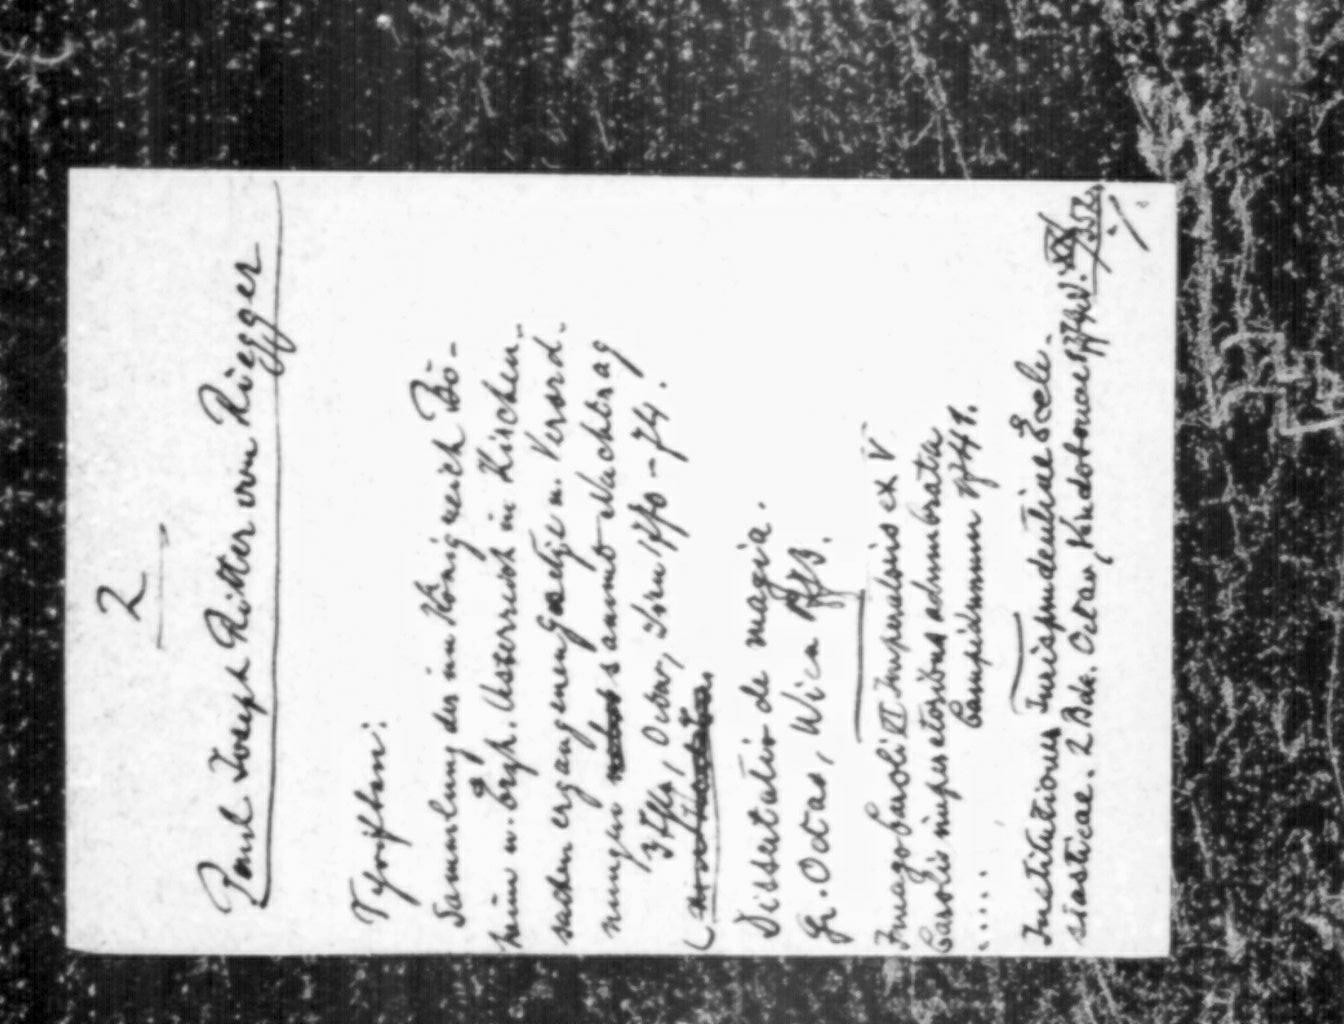 2
Paul Joseph Ritter von Riegger
Schriften:
Sammlung der im Königreich Bö-
heim u. Erzh. Österreich in Kirchen-
sachen ergangenen Gesetze u. Verord-
nungen samt Nachtrag
Dissertatio de magia.
Gr. Octav, Wien
Imago Caroli VI Imperatoris ex V
Carolis imperatoribus adumbrata
1741.
.....
Institutiones Jurisprudentiae Eccle-
siasticae. 2 Bde. Octav, Vindobonae
./.